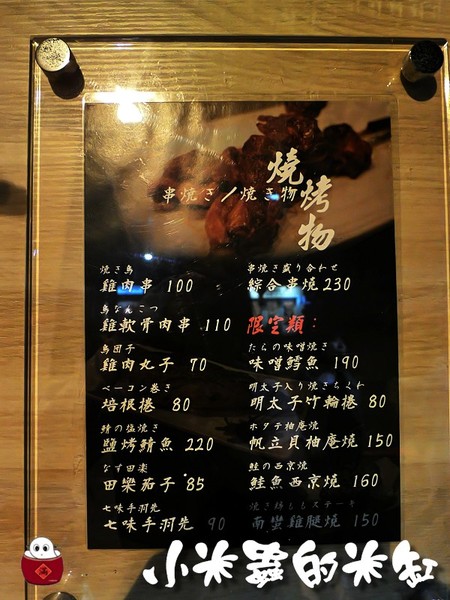 燒烤物
串焼き/焼き物
焼き鳥
雞肉串 100
鳥なんこつ
雞軟骨肉串 110
鳥団子
雞肉丸子 70
ベーコン巻き
培根捲 80
鯖の塩焼き
鹽烤鯖魚 220
なす田楽
田樂茄子 85
七味手羽先
七味手羽先 90
串焼き盛り合わせ
綜合串燒 230
限定類:
たらの味噌焼き
味噌鱈魚 190
明太子入り焼きちくわ
明太子竹輪捲 80
ホタテ柚庵焼
帆立貝柚庵燒 150
鮭の西京焼
鮭魚西京燒 160
南蛮雞腿燒 150
小米蟲的米缸